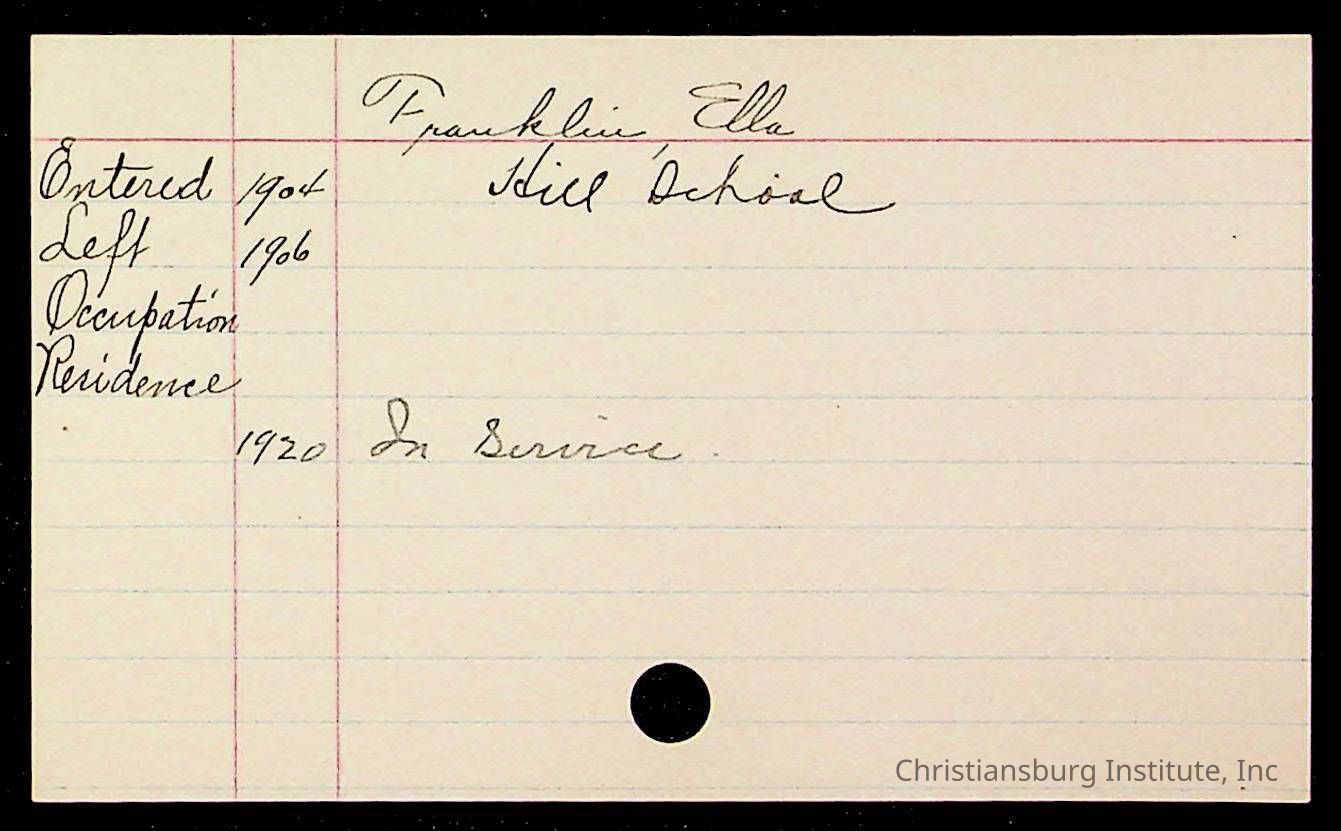 Franklin, Ella
Entered 1904 Hill School
Left 1906
Occupation
Residence
1920 In Service.
Christiansburg Institute, Inc